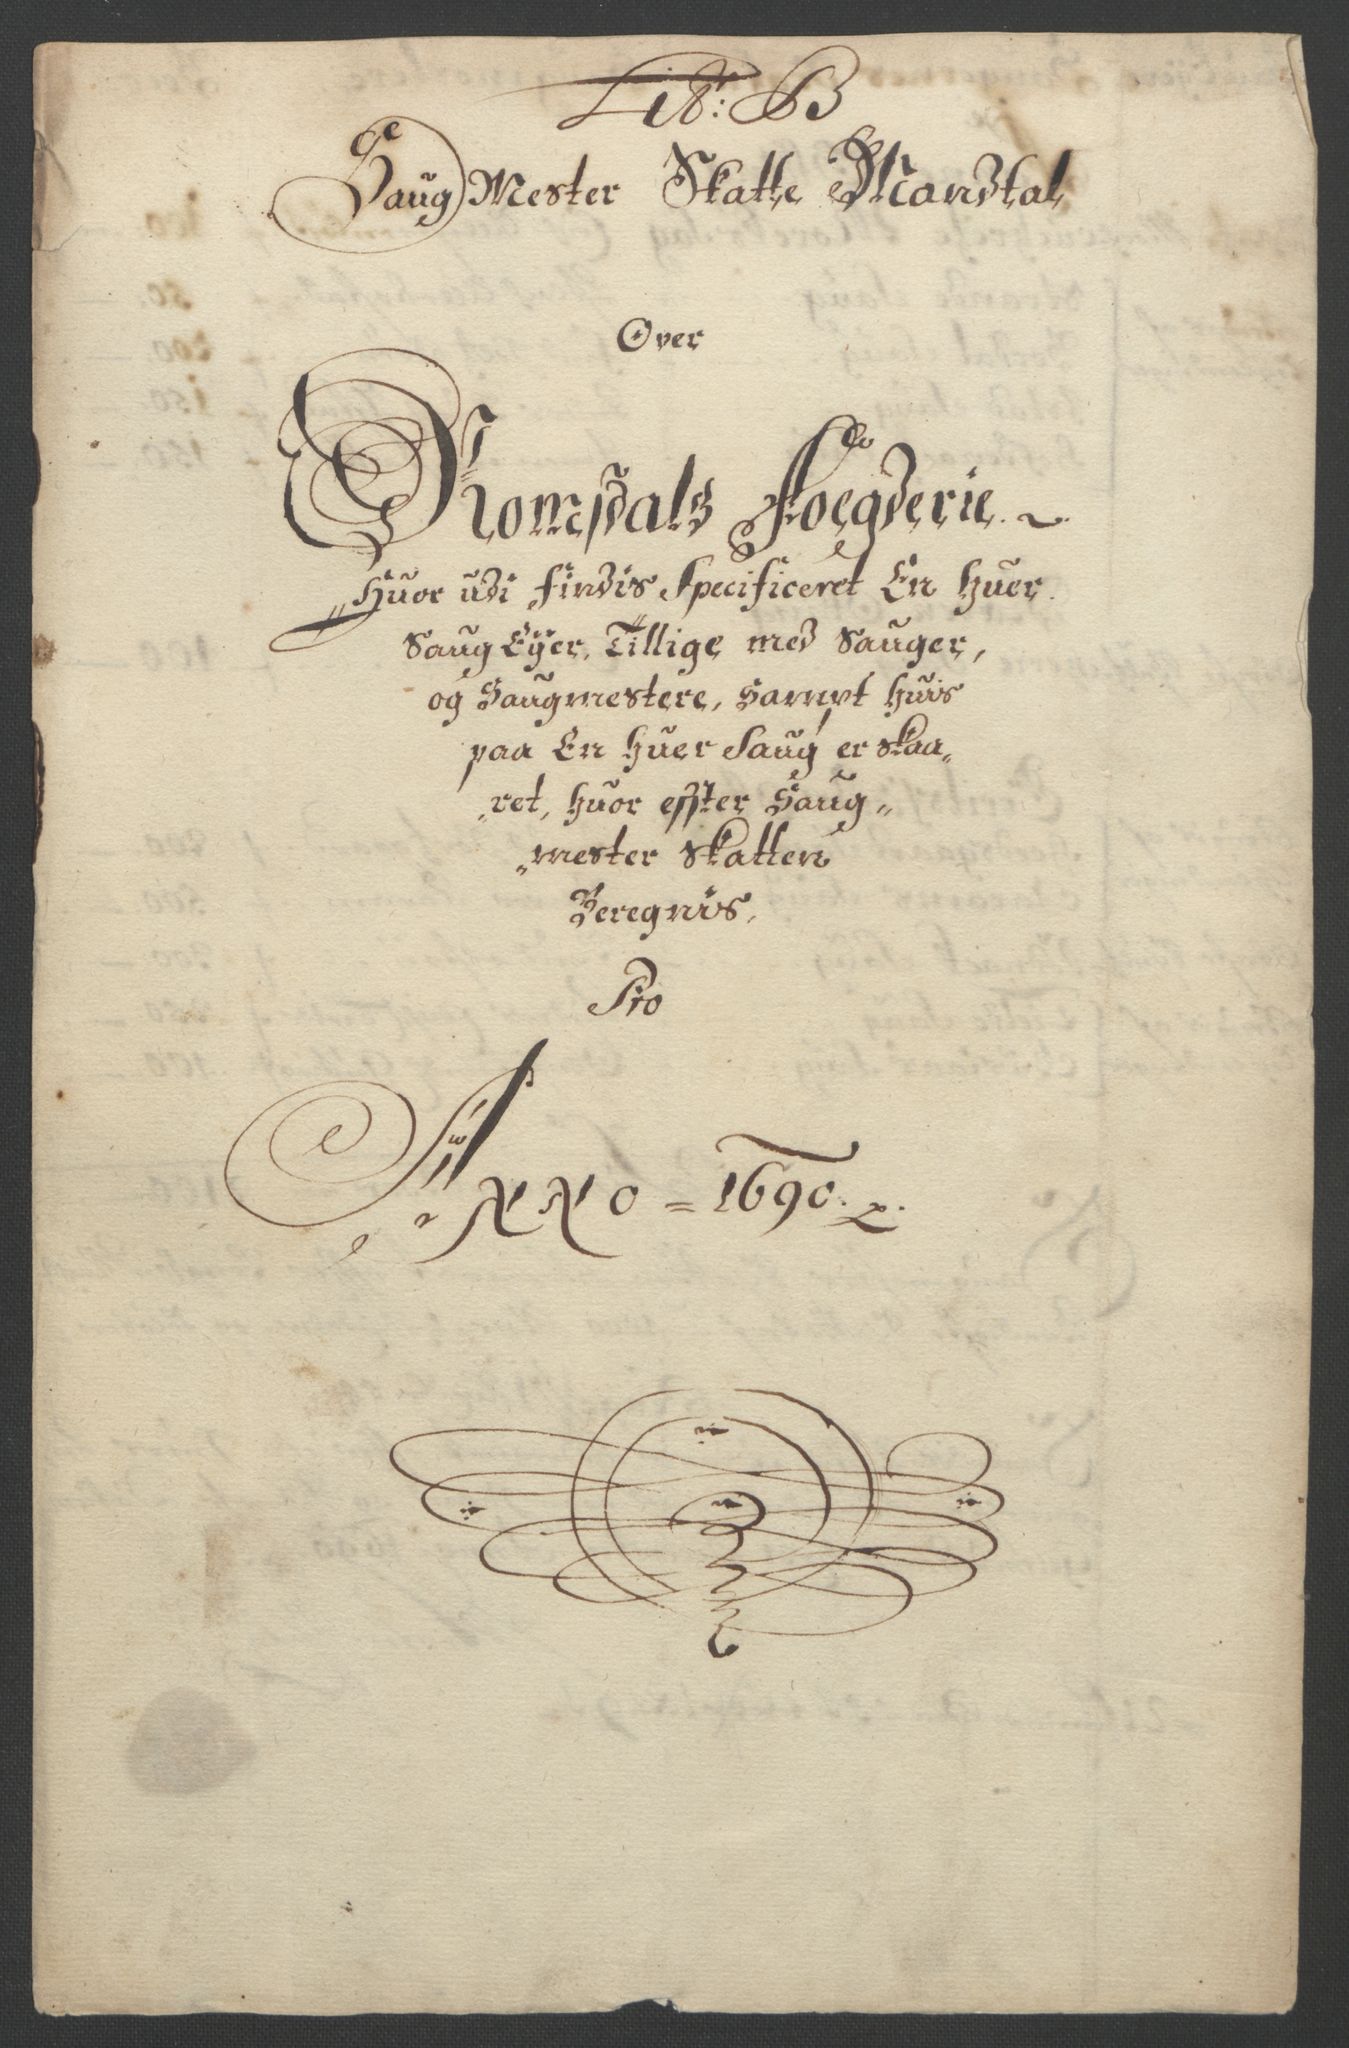 Lit: B
Saug Mester Skatte Mandtal
Over
Romsdals Foegderie.
Huor udi findis Specificeret En huer
Saug Eÿer, Tillige med Sauger,
og Saugmestere, Sampt huis
paa En huer Saug er skaa„
„ret, huor effter Saug„
„mester Skatten
Beregnis,
Pro
ANNO = 1690.